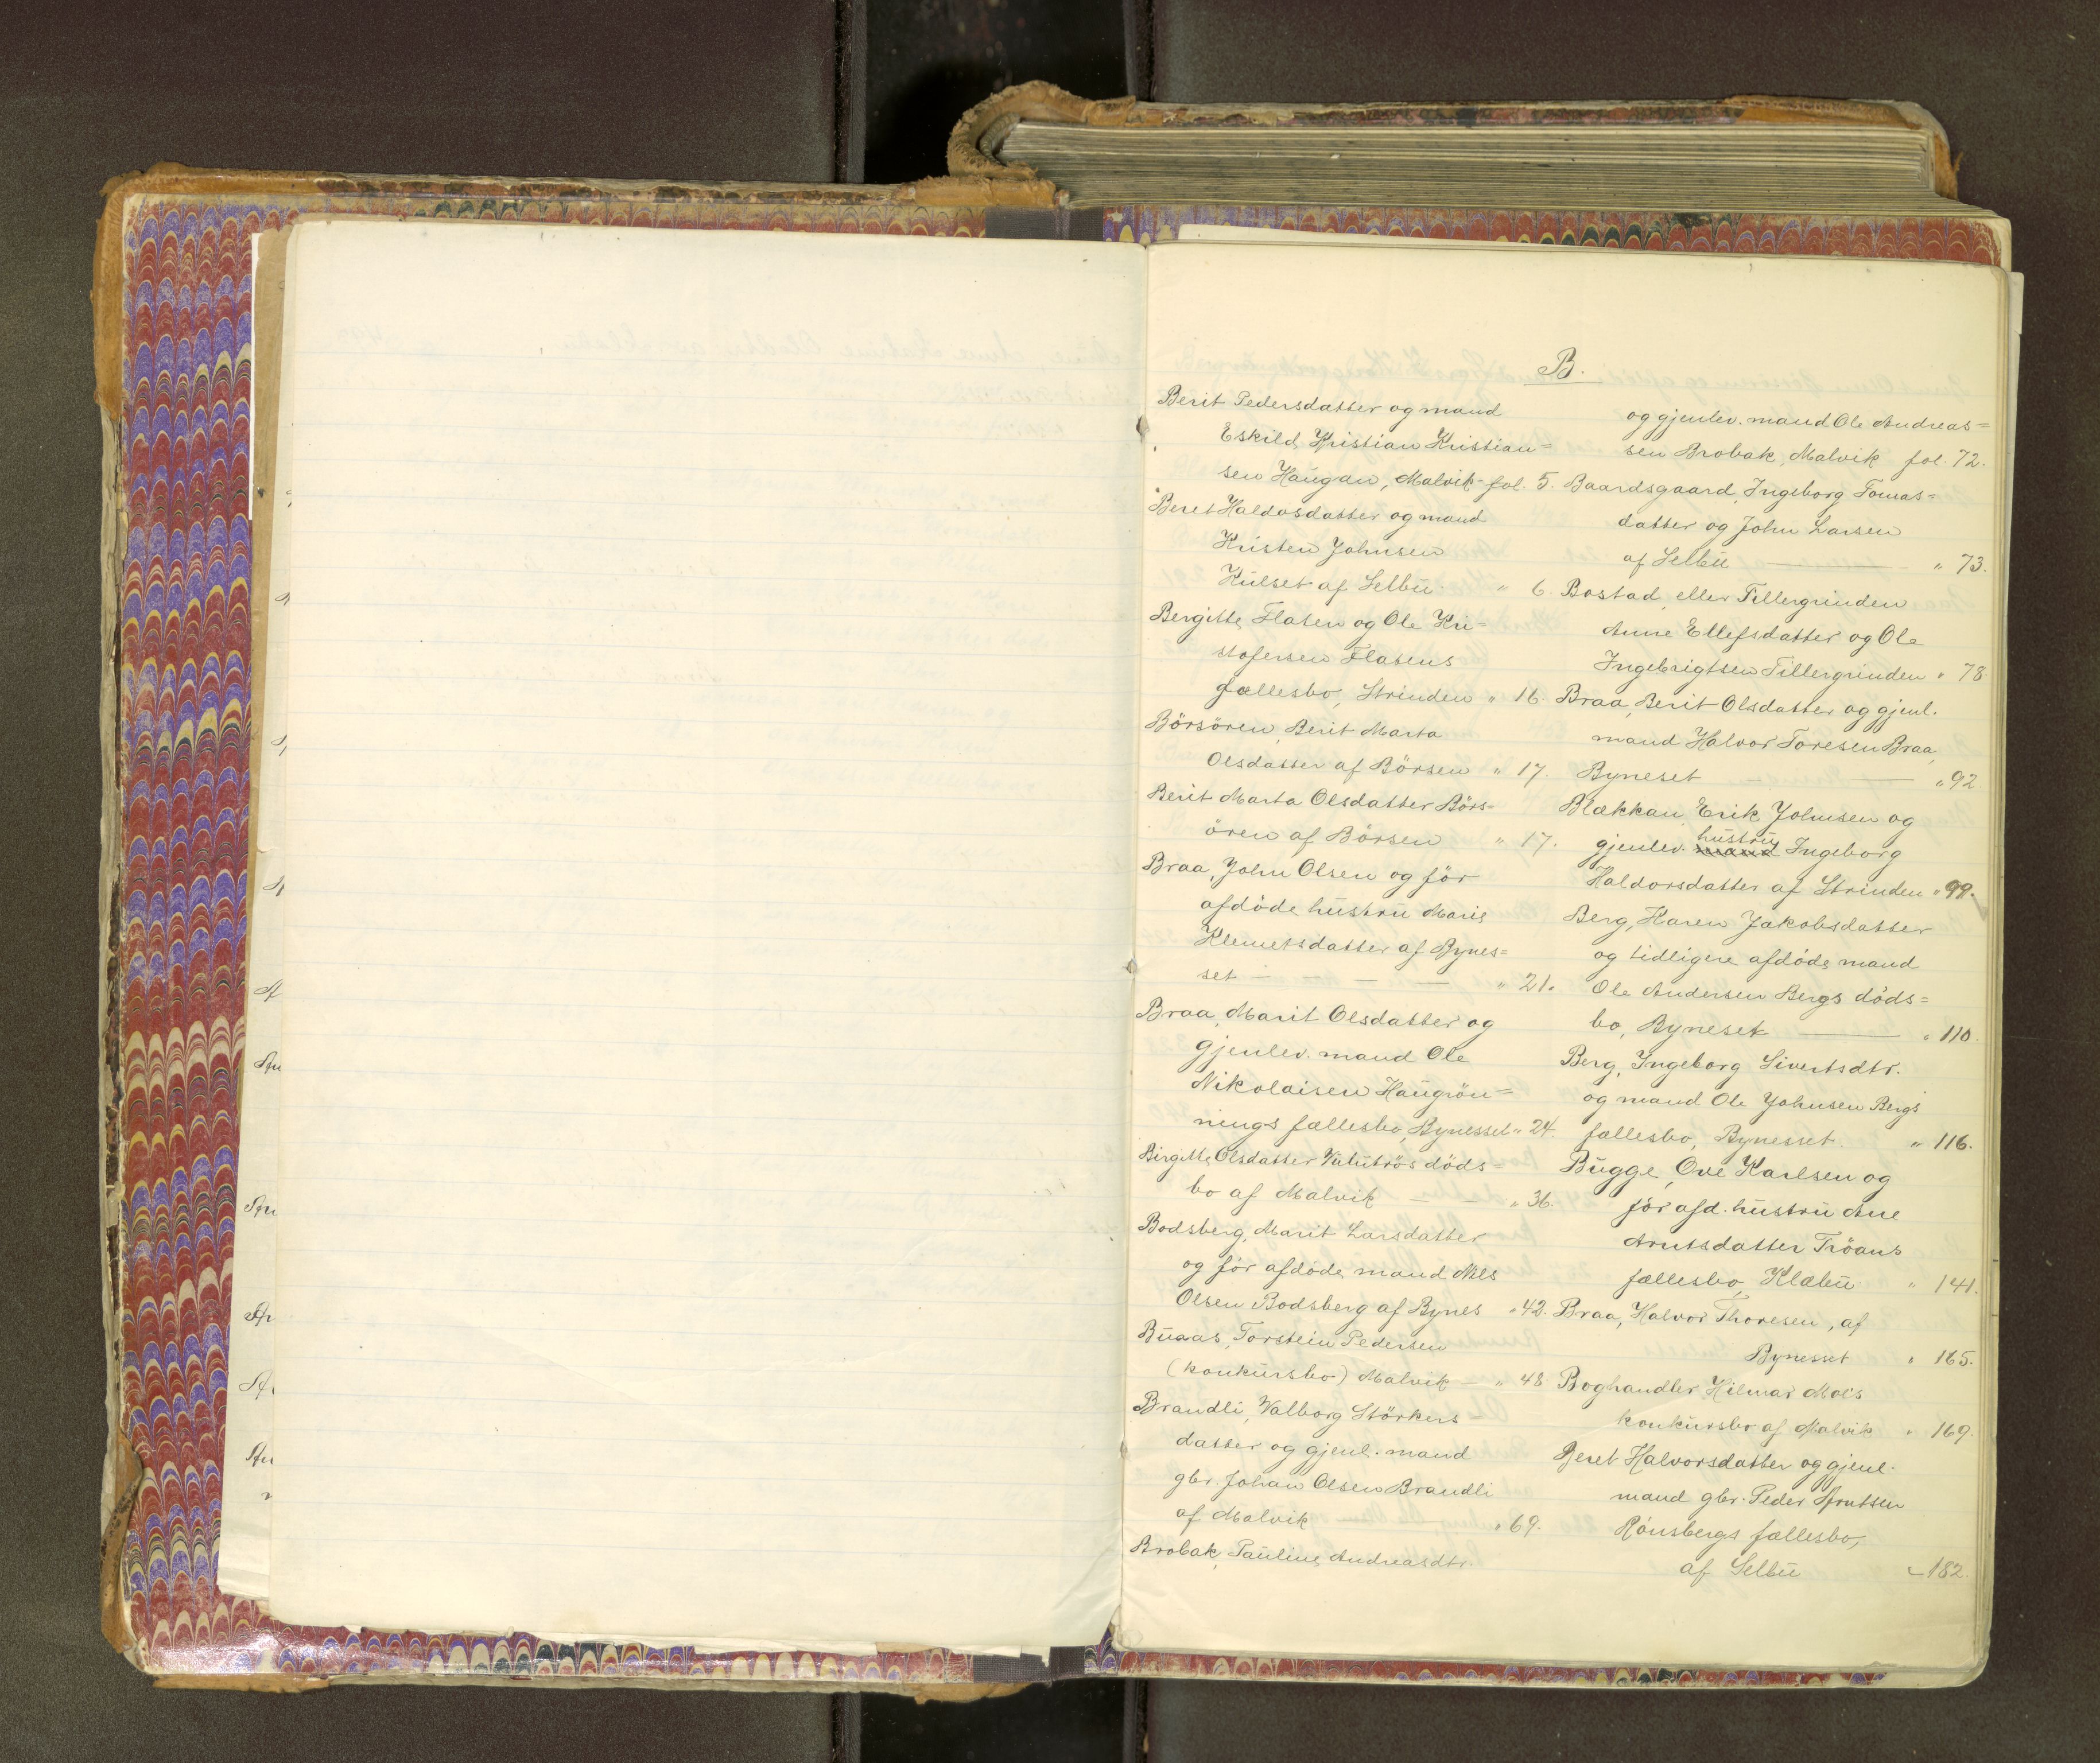 B.
Berit Pedersdatter og mand
Eskild Kristian Kristian=
sen Haugan, Malvik - fol. 5.
Beret Haldosdatter og mand
Kristen Johnsen
Kulset af Selbu. " 6.
Bergitte Flaten og Ole Kri=
stofersen Flatens
fællesbo, Strinden " 16.
Börsören, Berit Marta
Olsdatter af Börsen " 17.
Berit Marta Olsdatter Börs=
ören af Börsen " 17.
Braa, John Olsen og för
afdöde hustru Marie
Klemetsdatter af Bynes=
set — — — — " 21.
Braa, Marit Olsdatter og
gjenlev. mand Ole
Nikolaisen Haugrön=
nings fællesbo, Bynesset " 24.
Birgitte Olsdatter döds=
bo af Malvik — — " 36.
Bodsberg, Marit Larsdatter
og för afdöde mand Nils
Olsen Bodsberg af Bynes " 42.
Buaas, Torstein Pedersen
(konkursbo) Malvik — " 48
Brandli, Valborg Störkers
datter og gjenl. mand
gbr. Johan Olsen Brandli
af Malvik — " 69.
Brobak, Pauline Andreasdtr.
og gjenlev. mand Ole Andreas=
sen Brobak, Malvik fol. 72.
Baardsgaard, Ingeborg Tomas=
datter og John Larsen
af Selbu — " 73.
Bostad, eller Tillergrinden
Anne Ellefsdatter og Ole
Ingebrigtsen Tillergrinden " 78
Braa, Berit Olsdatter og gjenl.
mand Halvor Toresen Braa,
Byneset — — " 92
Blækkan, Erik Johnsen og
gjenlev. mand hustru Ingeborg
Haldorsdatter af Strinden " 99.
Berg, Karen Jakobsdatter
og tidligere afdöde mand
Ole Andersen Bergs döds=
bo, Byneset — " 110.
Berg, Ingeborg Sivertsdtr.
og mand Ole Johnsen Bergs
fællesbo, Bynesset. " 116.
Bugge, Ove Karlsen og
för afd. hustru Ane
Arntsdatter Tröans
fællesbo, Klæbu " 141.
Braa, Halvor Thoresen, af
Bynesset " 165.
Boghandler Hilmar Moe's
konkursbo af Malvik " 169.
Beret Halvorsdatter og gjenl.
mand gbr. Peder Arntsen
Rönsbergs fællesbo,
af Selbu " 182.